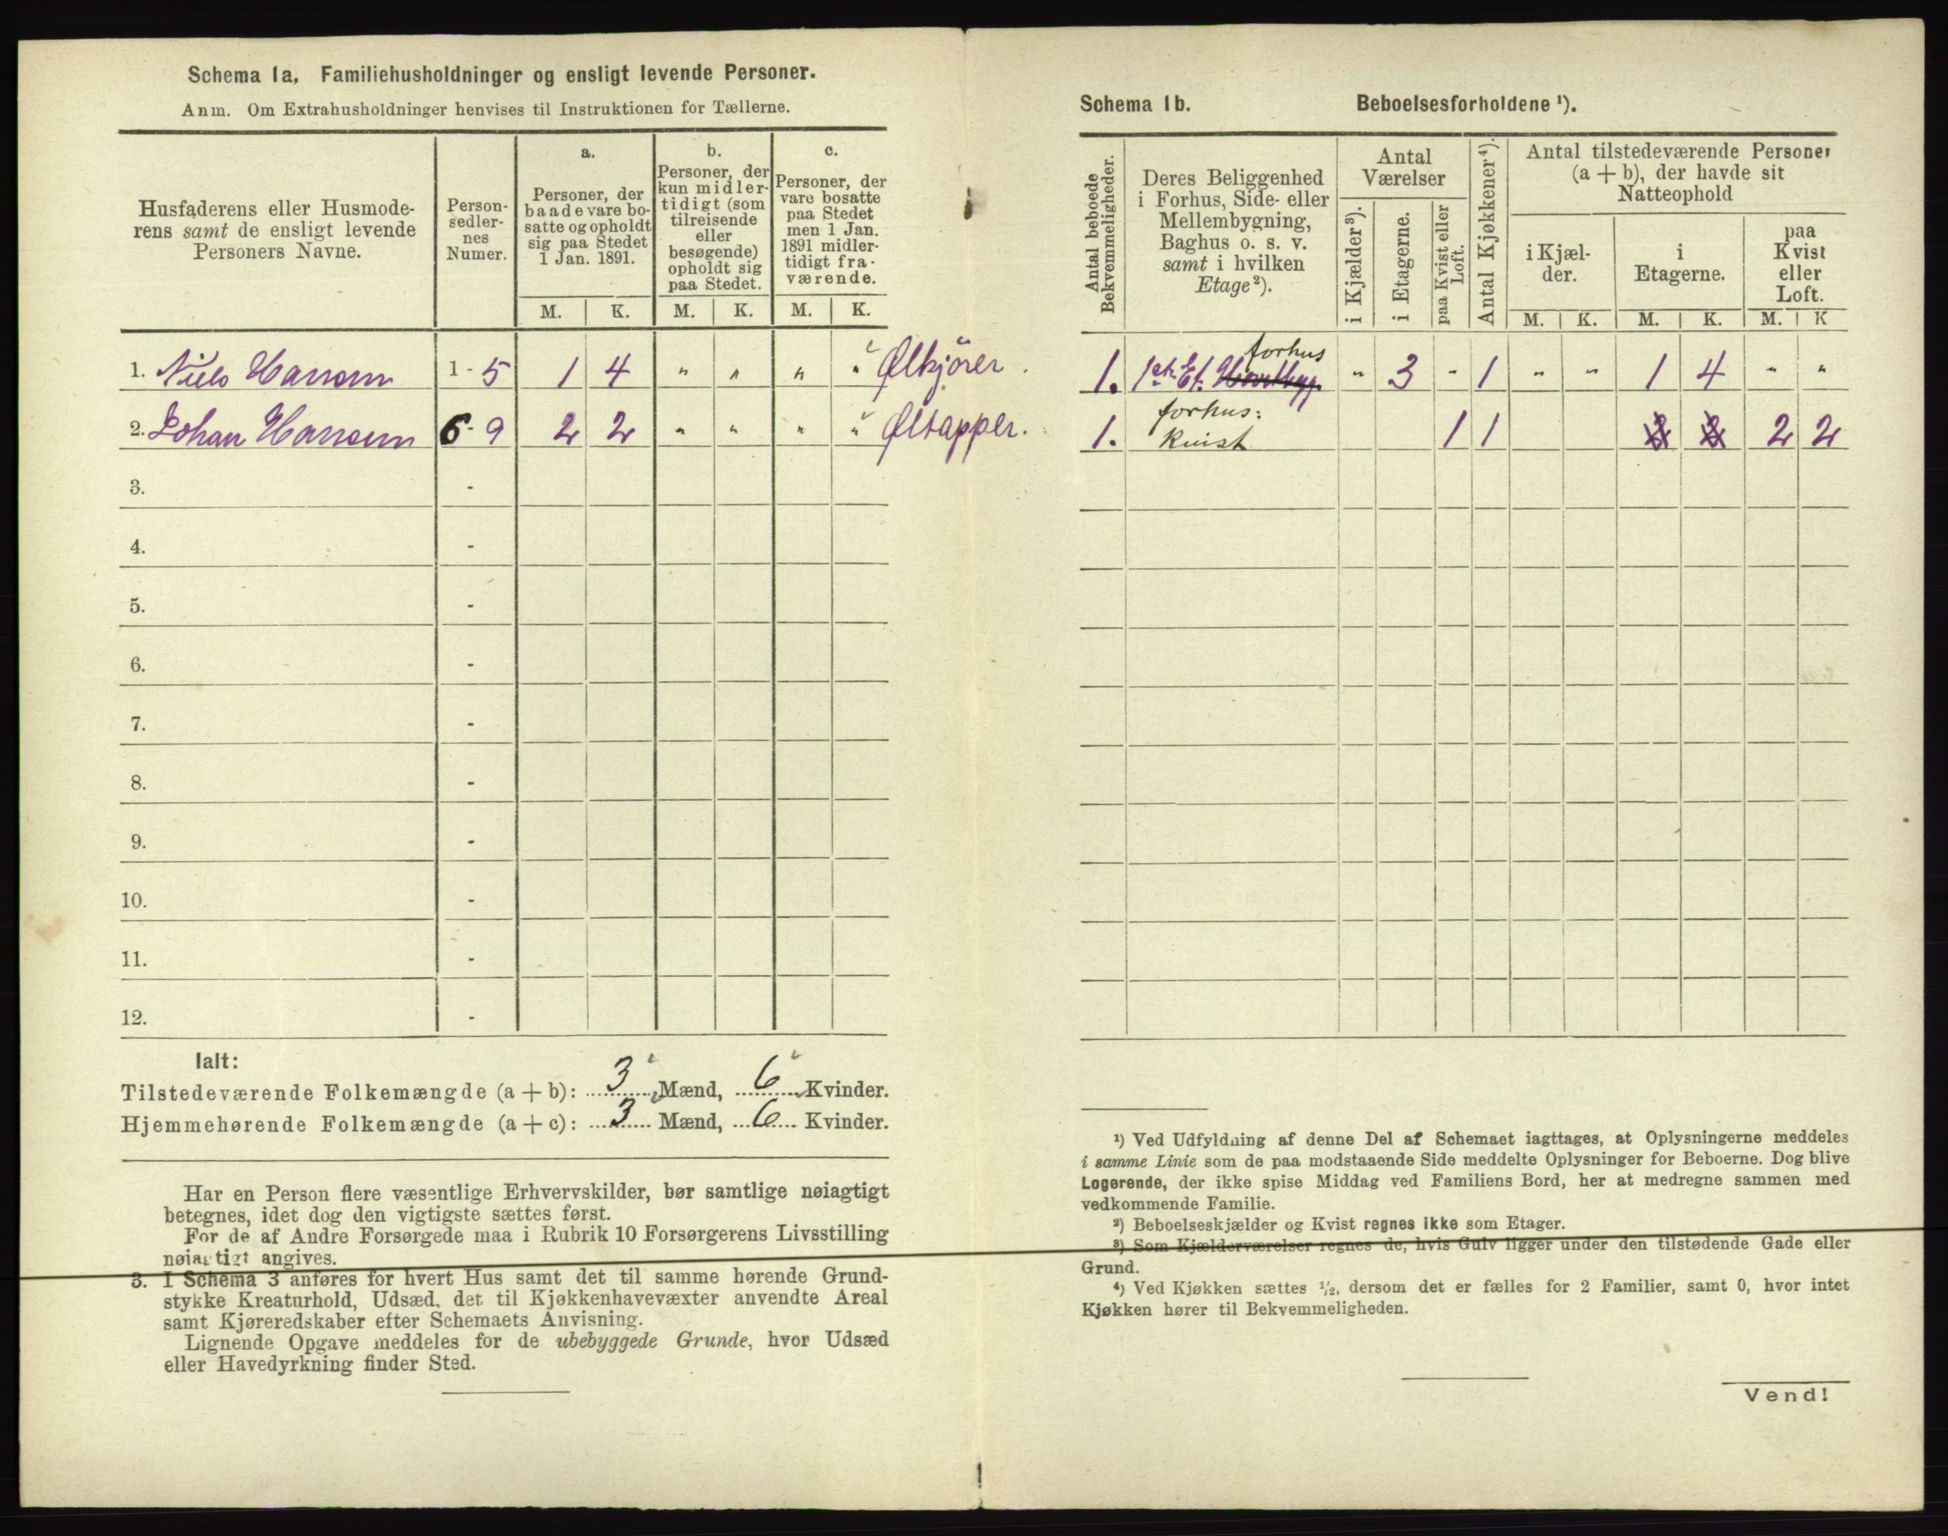 Schema 1a, Familiehusholdninger og ensligt levende Personer.
Anm. Om Extrahusholdninger henvises til Instruktionen for Tællerne.
Husfaderens eller Husmode-
rens samt de ensligt levende
Personers Navne.
Person-
sedler-
nes
Numer.
a.
Personer, der
baade vare bo-
satte og opholdt
sig paa Stedet
1 Jan. 1891.
b.
Personer, der
kun midler-
tidigt (som
tilreisende
eller
besøgende)
opholdt sig
paa Stedet.
c.
Personer, der
vare bosatte
paa Stedet
men 1 Jan.
1891 midler-
tidigt fra-
værende.
M. K. M. K. M. K.
1. Niels Hansen 1 - 5 1 4 " " " " Ølkjører.
2. Johan Hansen 6 - 9 2 2 " " " " Øltapper.
3. -
4. -
5. -
6. -
7. -
8. -
9. -
10. -
11. -
12. -
Ialt:
Tilstedeværende Folkemængde (a + b): 3 Mænd, 6 Kvinder.
Hjemmehørende Folkemængde (a + c): 3 Mænd, 6 Kvinder.
Har en Person flere væsentlige Erhvervskilder, bør samtlige nøiagtigt
betegnes, idet dog den vigtigste sættes først.
For de af Andre Forsørgede maa i Rubrik 10 Forsørgerens Livsstilling
nøiagtigt angives.
3. I Schema 3 anføres for hvert Hus samt det til samme hørende Grund-
stykke Kreaturhold, Udsæd, det til Kjøkkenhavevæxter anvendte Areal
samt Kjøreredskaber efter Schemaets Anvisning.
Lignende Opgave meddeles for de ubebyggede Grunde, hvor Udsæd
eller Havedyrkning finder Sted.
Schema 1b. Beboelsesforholdene ¹).
Antal beboede
Bekvemmeligheder.
Deres Beliggenhed
i Forhus, Side- eller
Mellembygning,
Baghus o. s. v.
samt i hvilken
Etage²).
Antal
Værelser
i Kjælder³).
i Etagerne.
paa Kvist eller
Loft.
Antal Kjøkkener⁴).
Antal tilstedeværende Personer
(a + b), der havde sit
Natteophold
i Kjæl-
der.
i
Etagerne.
paa
Kvist
eller
Loft.
M. K. M. K. M. K
forhus
1. 1ste Et. Hovedbyg. " 3 " 1 " " 1 4 " "
forhus:
1. Kvist 1 1 2 2 2 2
¹) Ved Udfyldning af denne Del af Schemaet iagttages, at Oplysningerne meddeles
i samme Linie som de paa modstaaende Side meddelte Oplysninger for Beboerne. Dog blive
Logerende, der ikke spise Middag ved Familiens Bord, her at medregne sammen med
vedkommende Familie.
²) Beboelseskjælder og Kvist regnes ikke som Etager.
³) Som Kjælderværelser regnes de, hvis Gulv ligger under den tilstødende Gade eller
Grund.
⁴) Ved Kjøkken sættes ½, dersom det er fælles for 2 Familier, samt 0, hvor intet
Kjøkken hører til Bekvemmeligheden.
Vend!